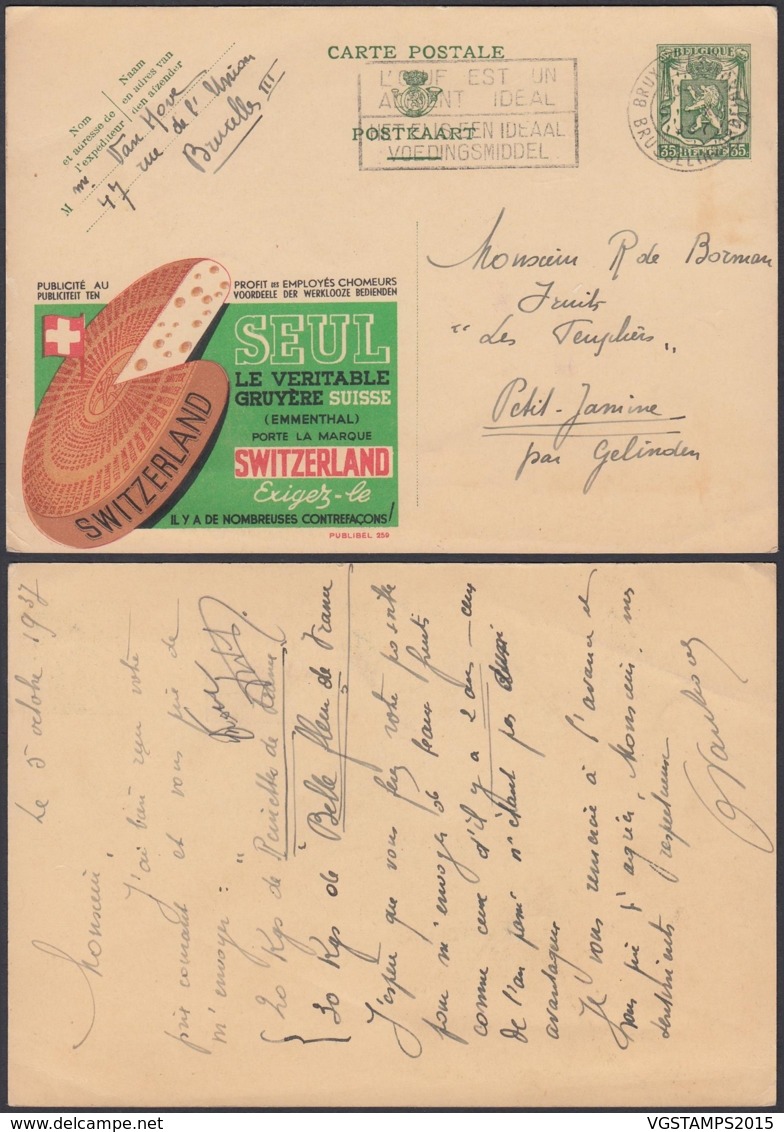 CARTE POSTALE
POSTKAART
L'ŒUF EST UN
ALIMENT IDEAL
HET EI IS EEN IDEAAL
VOEDINGSMIDDEL
BELGIQUE
35 BELGIË 35
Nom
et adresse de
l'expéditeur
Naam
en adres van
den afzender
M me Van Hove
47 rue de l'Union
Bruxelles III
Monsieur R de Borman
Fruits
"Les
Petit-Jamine
par Gelinden
PUBLICITÉ AU PROFIT DES EMPLOYÉS CHOMEURS
PUBLICITEIT TEN VOORDEELE DER WERKLOOZE BEDIENDEN
SEUL
LE VERITABLE
GRUYÈRE SUISSE
(EMMENTHAL)
PORTE LA MARQUE
SWITZERLAND
Exigez-le
IL Y A DE NOMBREUSES CONTREFAÇONS!
SWITZERLAND
PUBLIBEL 259
Le 5 octobre 1937
Monsieur,
J'ai bien reçu votre
prix courant et vous prie de
m'envoyer :
20 Kgs de Reinettes de France
30 Kgs de Belle fleur de France
J'espère que vous ferez votre possible
pour m'envoyer de beaux fruits
comme ceux d'il y a 2 ans - ceux
de l'an passé n'étant pas aussi
avantageux
Je vous remercie à l'avance et
vous prie d'agréer, Monsieur, mes
sentiments respectueux
VGSTAMPS2015